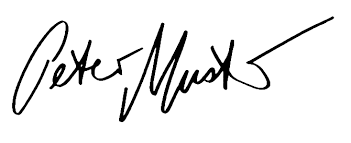 Peter Muster